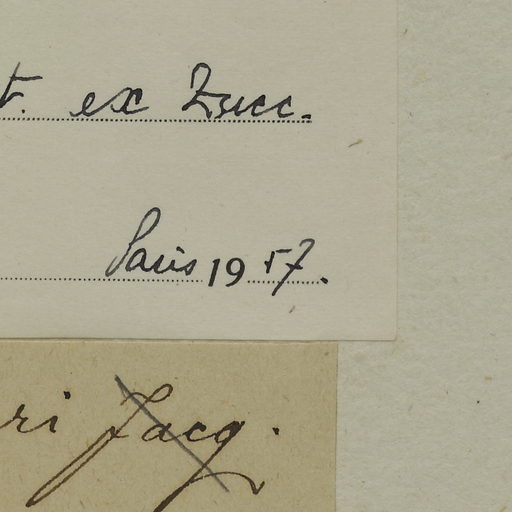 t. ex Zucc.
Paris 1957.
ri Jacq.